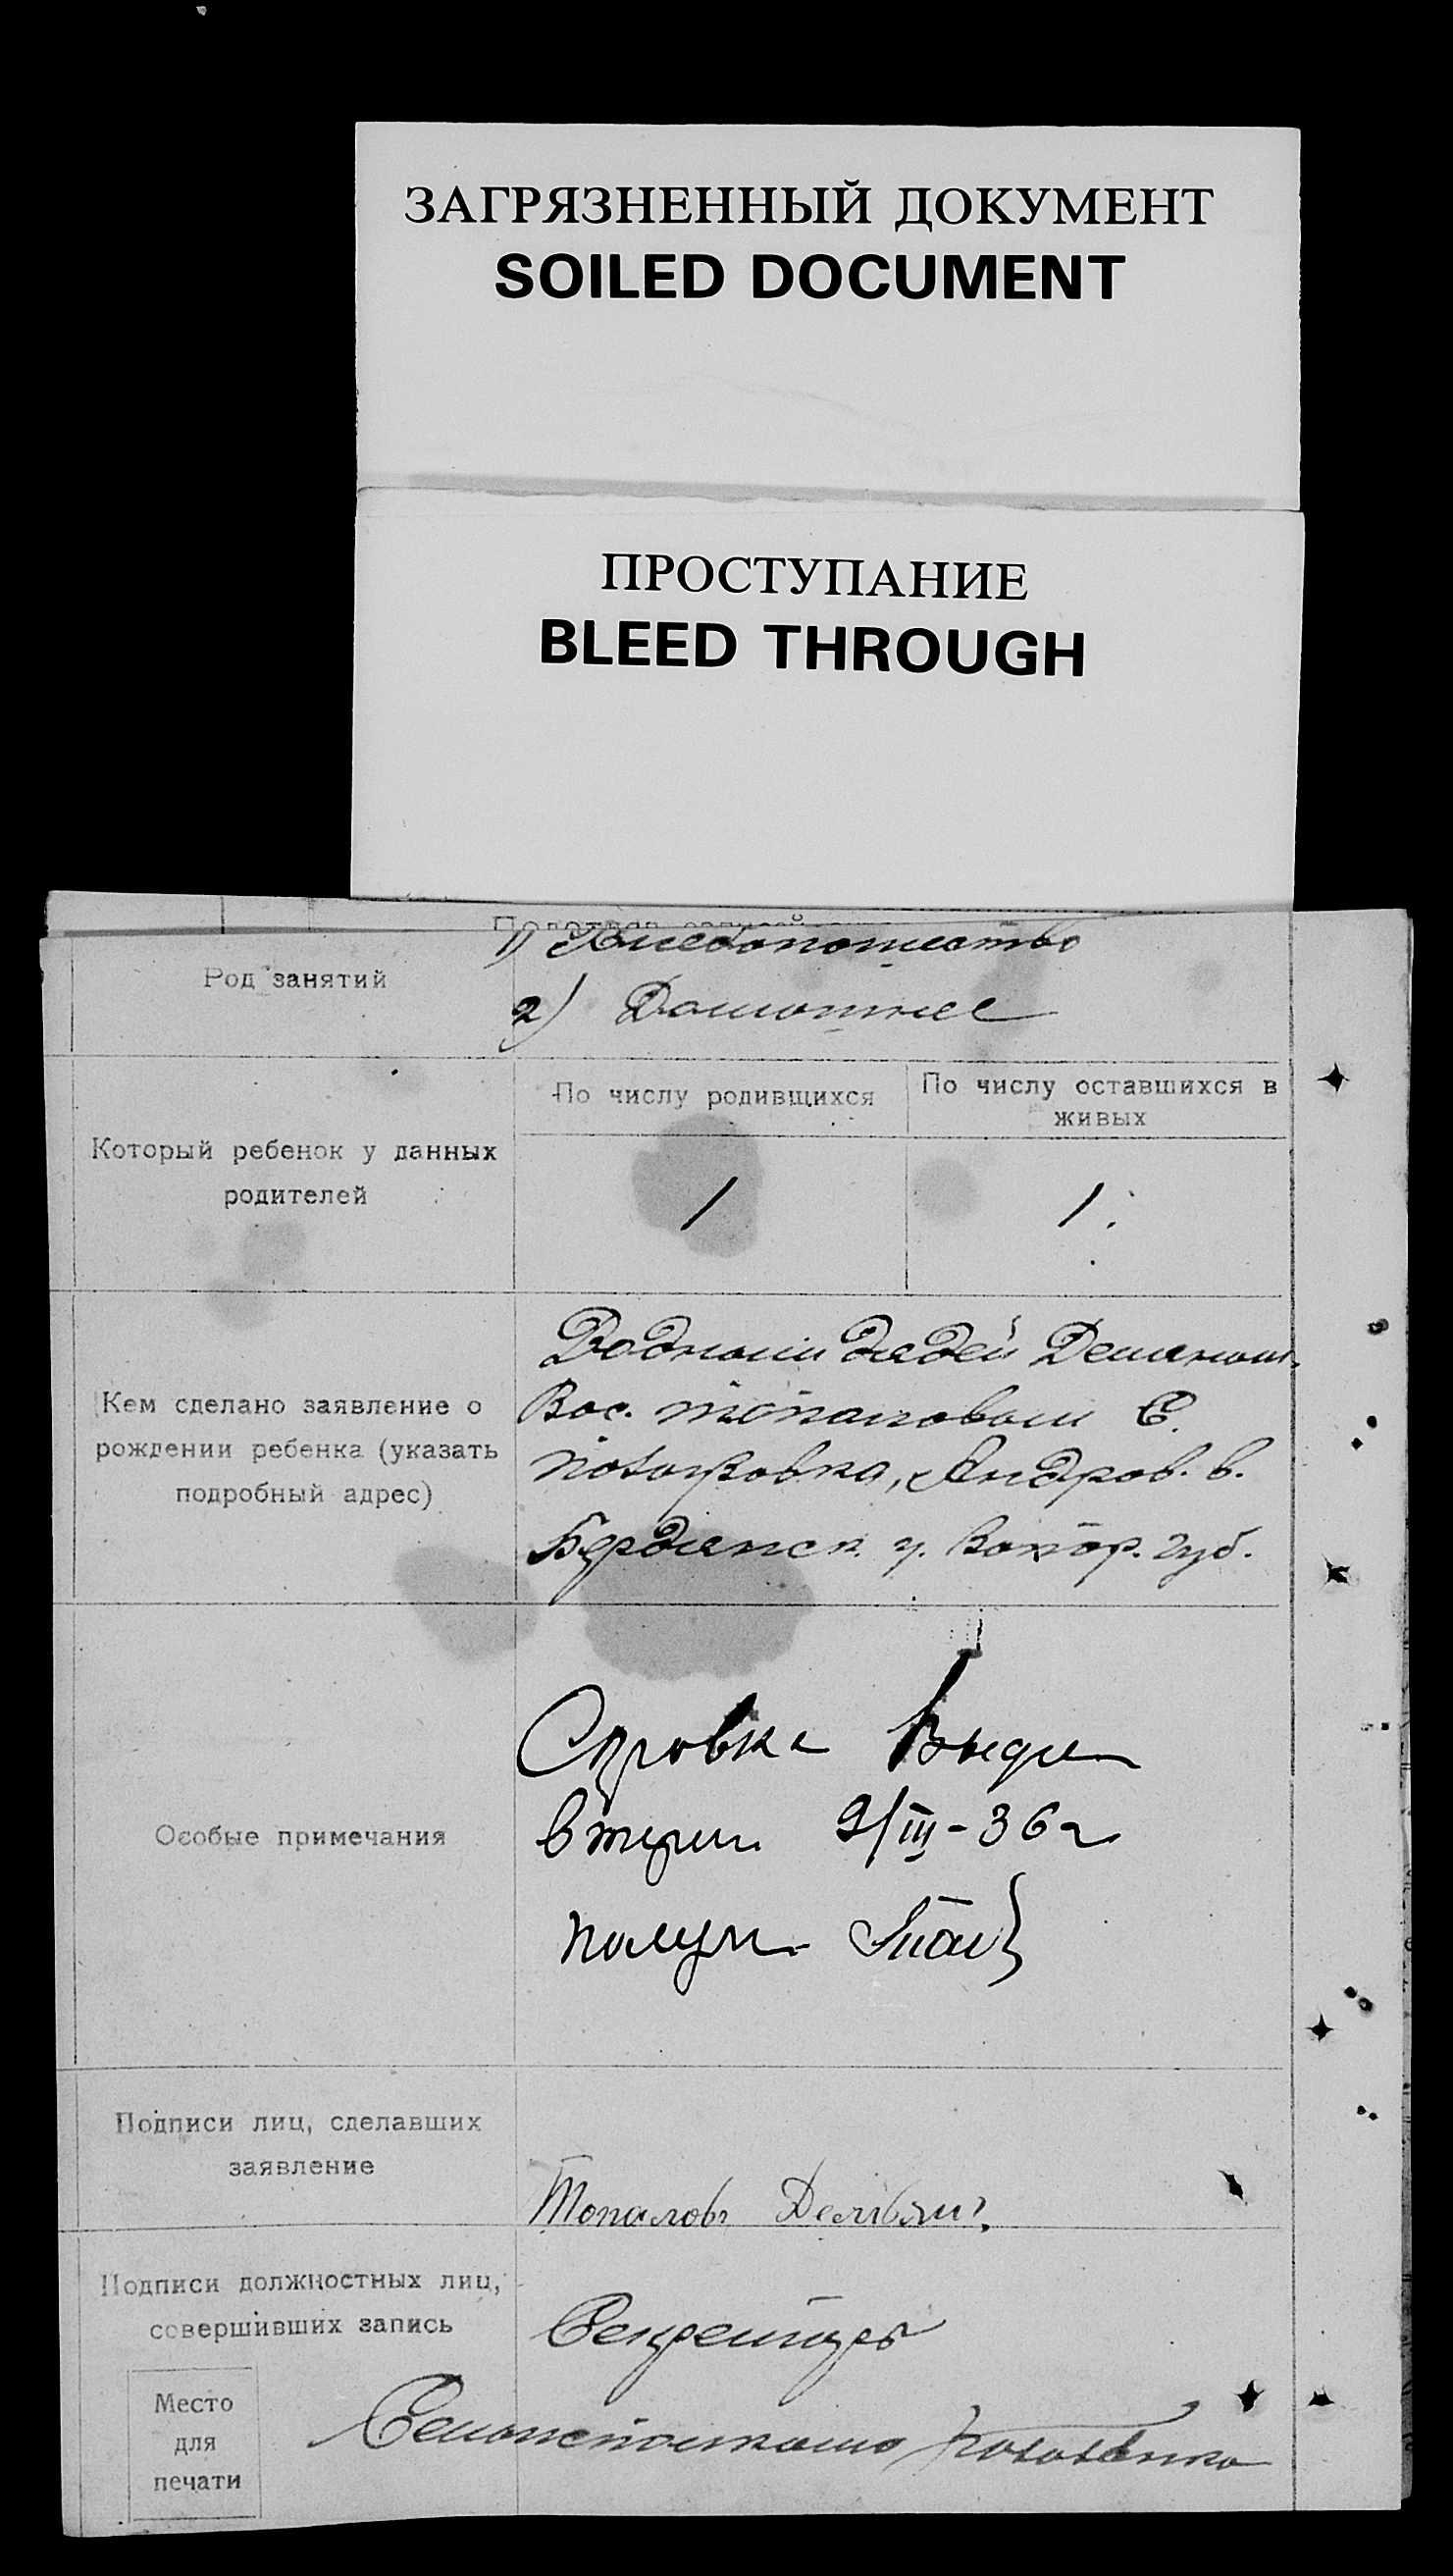 ЗАГРЯЗНЕННЫЙ ДОКУМЕНТ
SOILED DOCUMENT
ПРОСТУПАНИЕ
BLEED THROUGH
Род занятий
1) Хлебопашество
2) Домашнее
Который ребенок у данных
родителей
По числу родившихся
По числу оставшихся в
живых
1
1
Кем сделано заявление о
рождении ребенка (указать
подробный адрес)
Родным дядей Демьяном
Вас. Топаловым С.
Андров. в.
Бердянск. у. Запор. губ.
Особые примечания
Справка Выдан
втори 9/III-36 г
получил
Подписи лиц, сделавших
заявление
Топаловъ Демьян
Подписи должностных лиц,
совершивших запись
Секретарь
Место
для
печати